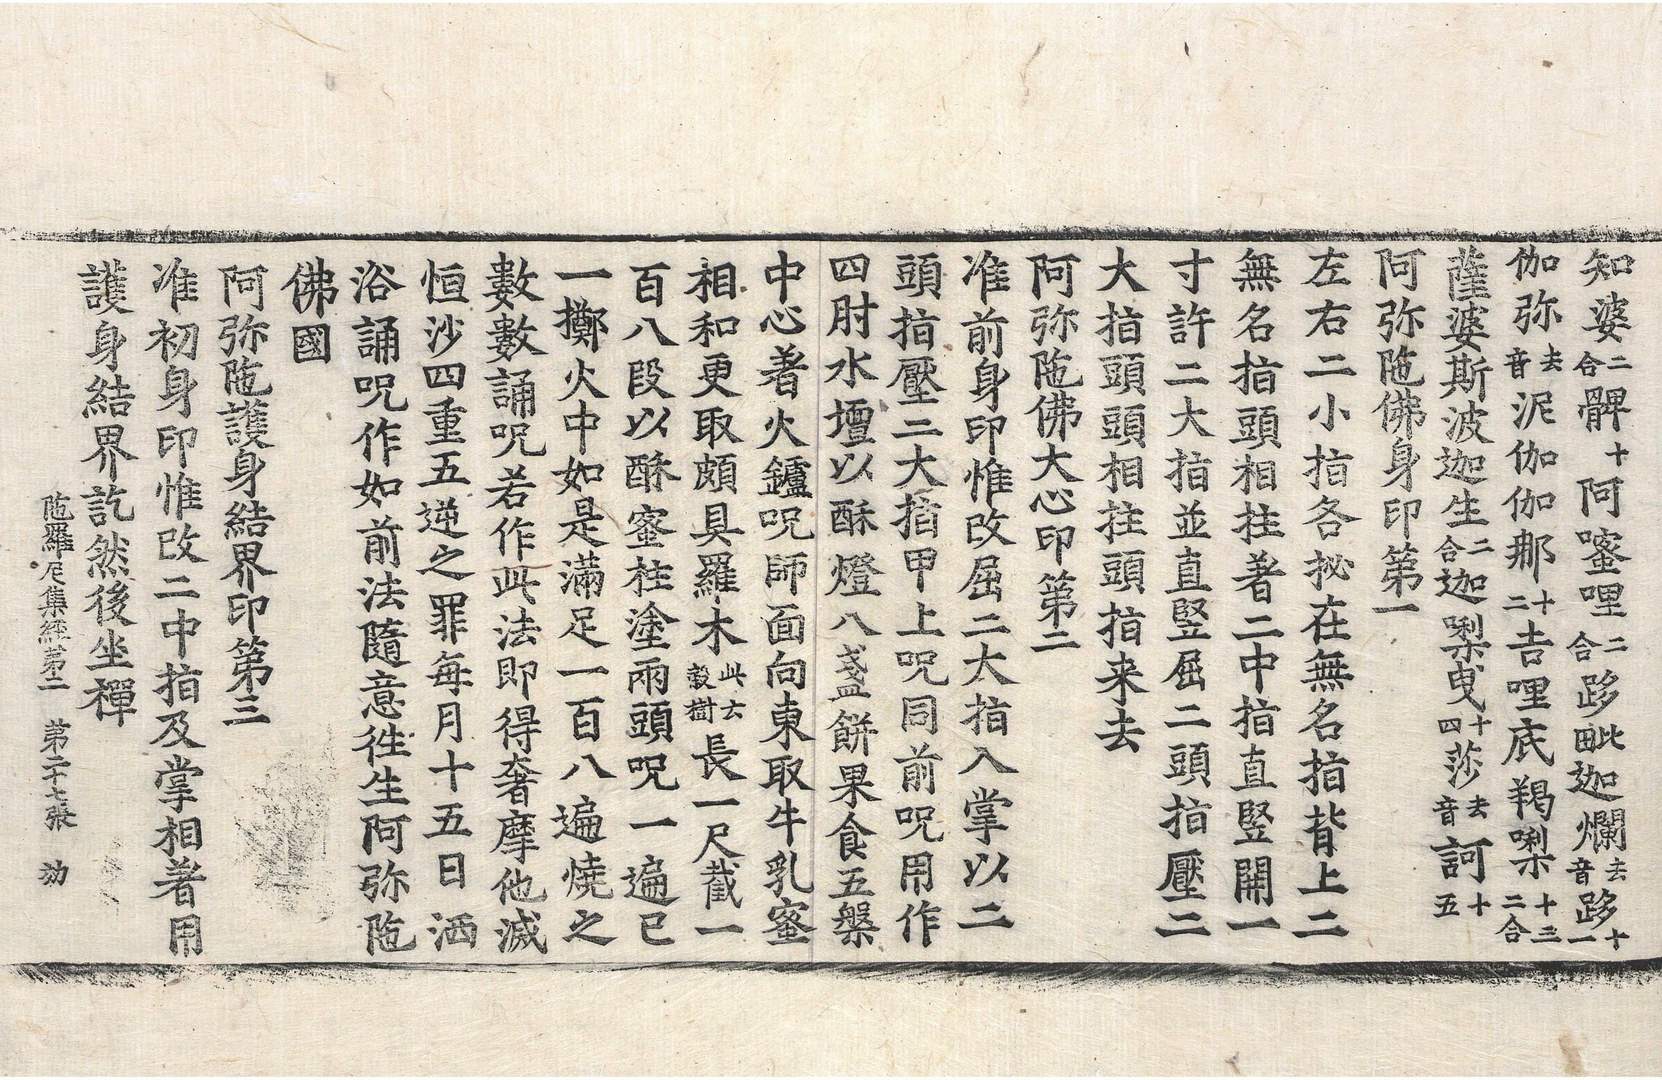 知婆二合髀十阿㗭哩二合跢毗迦爛去音跢十一
伽弥去音泥伽伽那十二吉哩底羯㗚十三二合
薩婆斯波迦生二合迦㗚曳十四莎去音訶十五
阿弥陁佛身印第一
左右二小指各拟在無名指背上二
無名指頭相拄著二中指直竪開一
寸許二大指並直竪屈二頭指壓二
大指頭頭相拄頭指来去
阿弥陁佛大心印第二
准前身印惟改屈二大指入掌以二
頭指壓二大指甲上呪同前呪用作
四肘水壇以酥燈八盞餅果食五槃
中心著火鑪呪師面向東取牛乳蜜
相和更取頗具羅木此云穀樹長一尺截一
百八段以酥蜜柱塗兩頭呪一遍已
一擲火中如是滿足一百八遍燒之
數數誦呪若作此法即得奢摩他滅
恒沙四重五逆之罪每月十五日洒
浴誦呪作如前法隨意往生阿弥陁
佛國
阿弥陁護身結界印第三
准初身印惟改二中指及掌相著用
護身結界訖然後坐禪
陁羅尼集經第二　第二十七張　劝